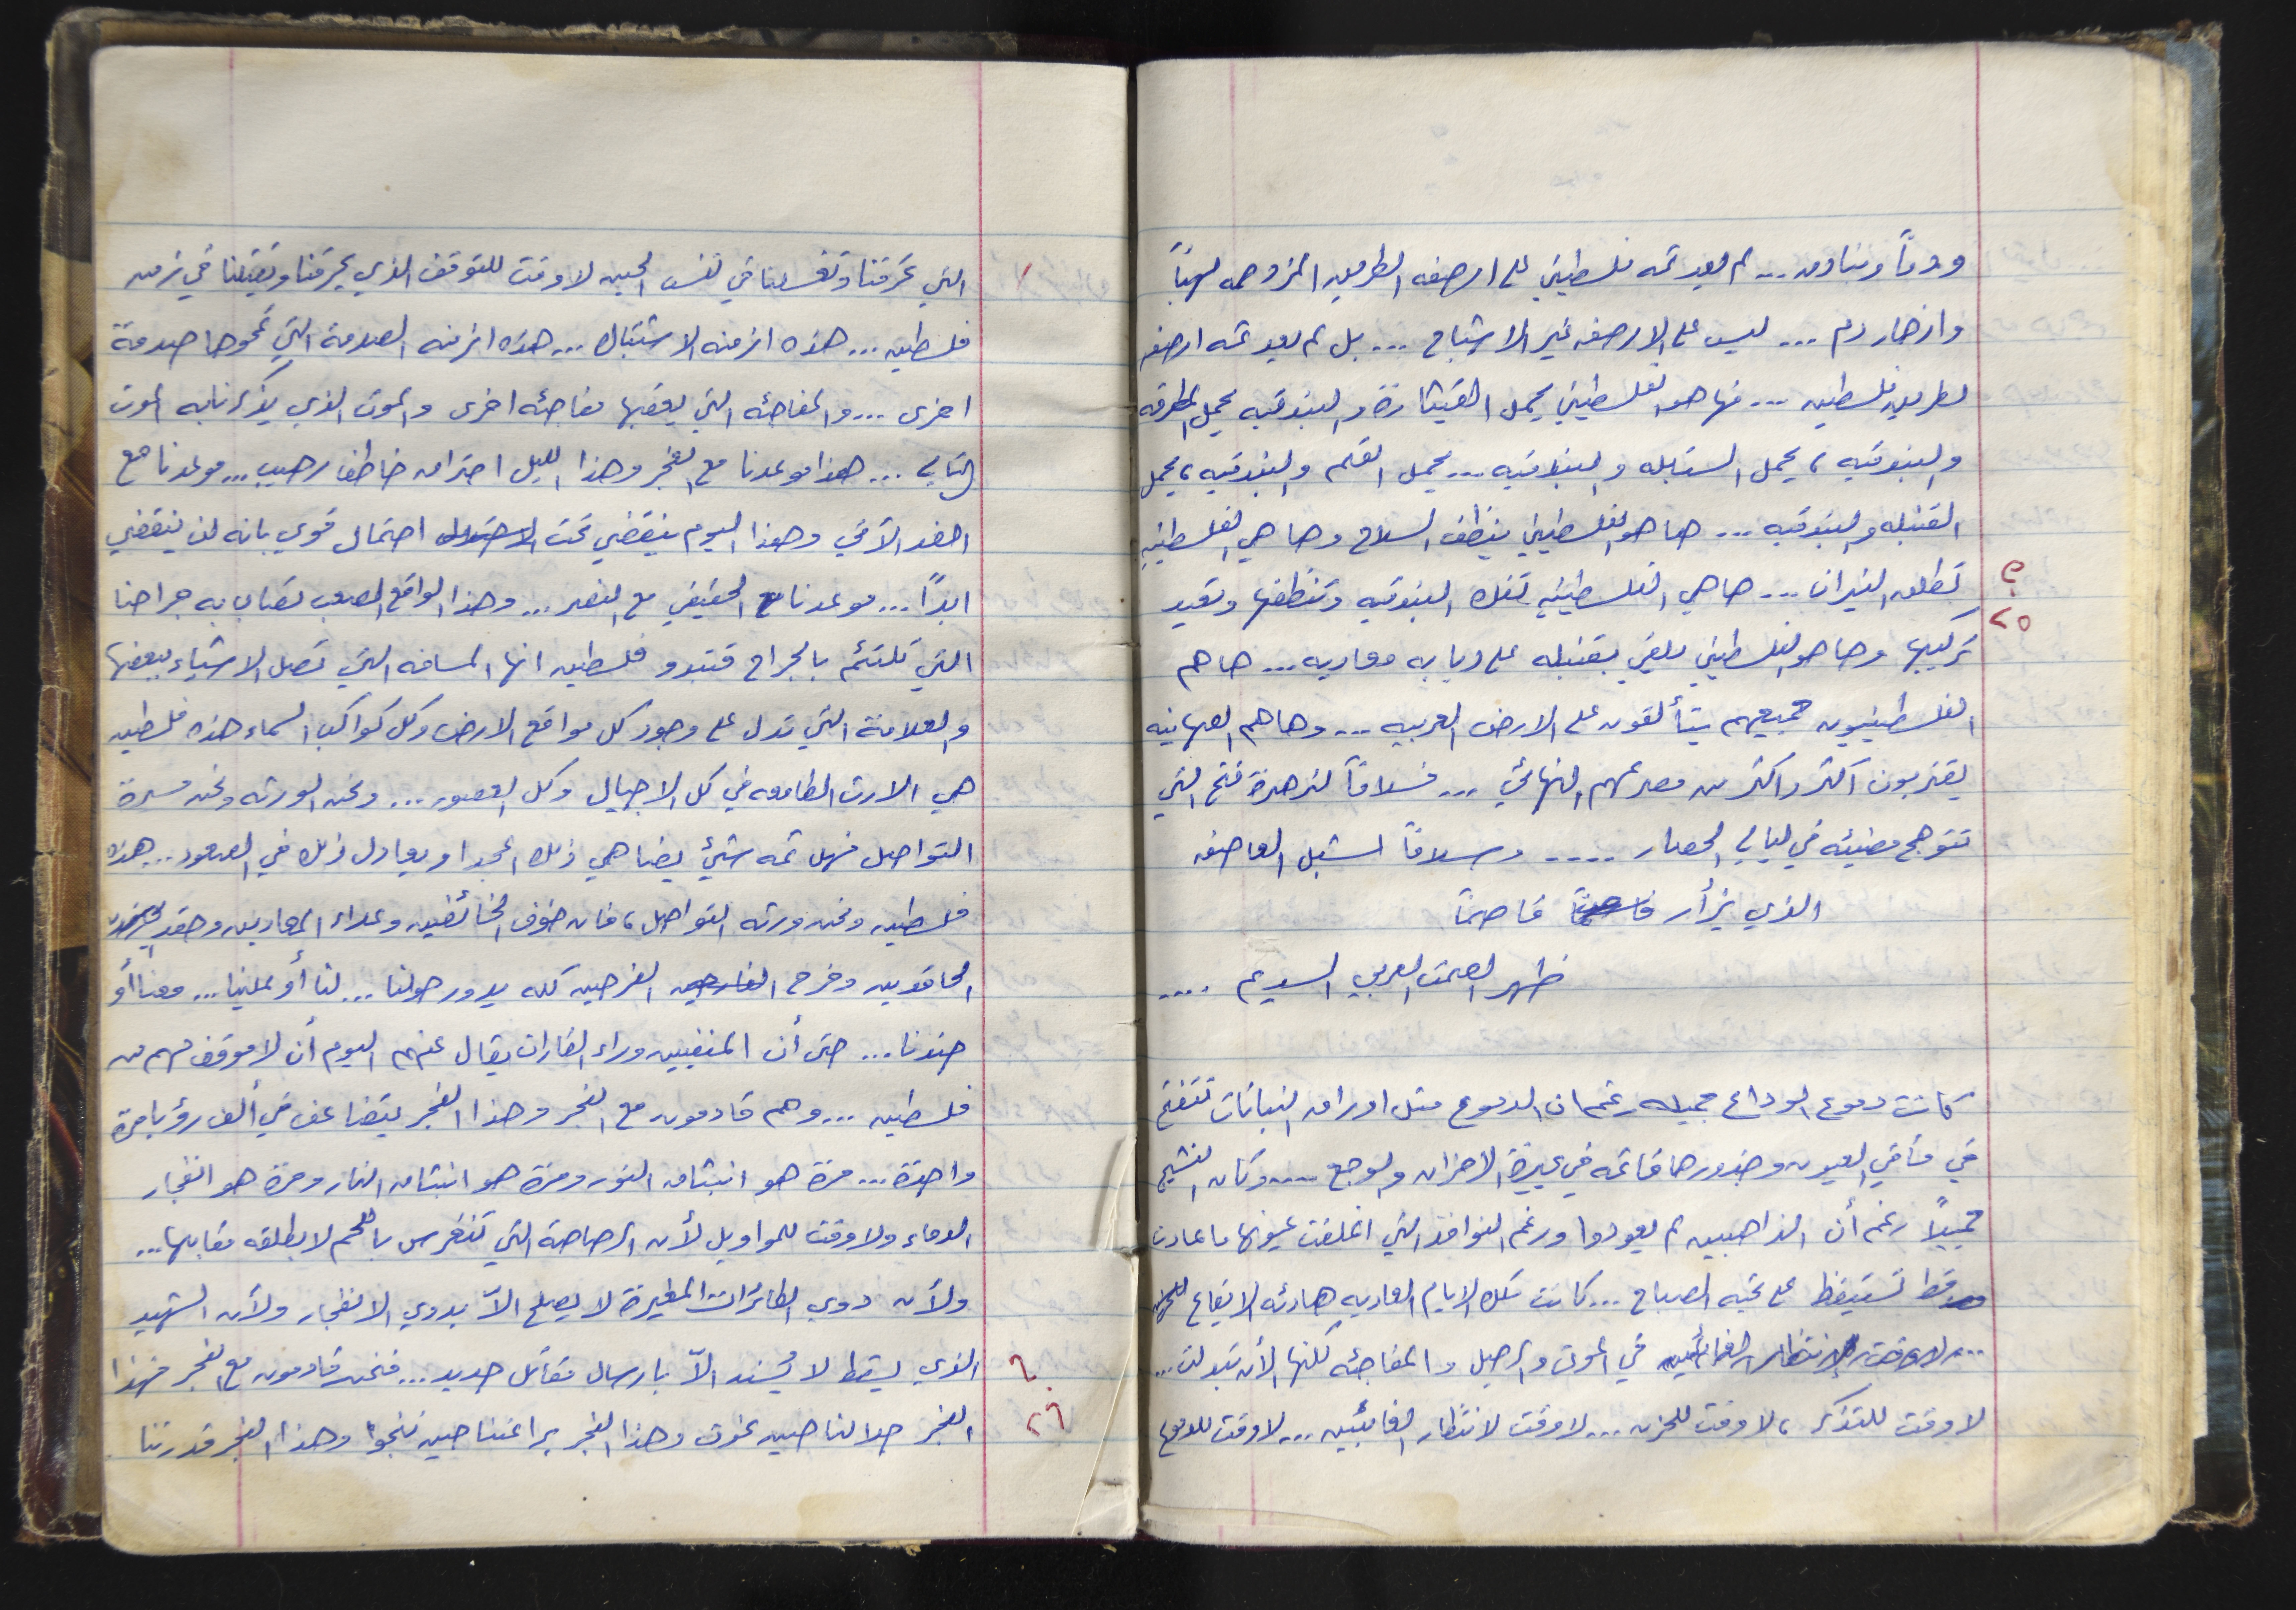 ودماً وبنادق... لم يعد ثمه فلسطيني على ارصفه الطريق المزروعه لهباً
وازهار دم ... ليس على الارصفه غير الاشباح ... بل لم يعد ثمه ارصفه
لطريق فلسطين ... فها هو الفلسطيني يحمل القيثارة والبندقيه يحمل المطرقه
والبندقيه ، يحمل السنبله والبندقيه ... يحمل القلم والبندقيه ، يحمل
القنبله والبندقيه ... ها هو الفلسطيني ينظف السلاح وها هي الفلسطينيه
تطلق النيران ... ها هي الفلسطينيه تفك البندقيه وتنظفها وتعيد
تركيبها وها هو الفلسطيني يلقي بقنبله على دبابه معاديه ... ها هم
الفلسطينيون جميعهم يتألقون على الارض العربيه ... وها هم الصهاينه
يقتربون اكثر واكثر من مصرعهم النهائي ... فسلاماً لزهرة فتح التي
تتوهج مضيئه في ليالي الحصار .... وسلاماً لشبل العاصفه
الذي يزأر قاصماً
ظهر الصمت العربي السديم ....
كانت دموع الوداع جميله رغم ان الدموع مثل اوراق النباتات تتفتح
في مآقي العيون وجذورها قائمه في بحيرة الاحزان والوجع .... وكان النشيج
جميلاً رغم أن الذاهبين لم يعودوا ورغم النوافذ التي اغلقت عيونها ما عادت
قط تستيقظ على تحيه الصباح ... كانت تلك الايام العاديه هادئه الايقاع
... في الموت والرحيل والمفاجئه لكنها الأن تبدلت ...
لا وقت للتذكر ، لا وقت للحزن ... لا وقت لانتظار الغائبين ... لا وقت للدموع
٢٥
التي تحرقنا وتغسلنا في نفس الحين لا وقت للتوقف الذي يحرقنا ويقتلنا في زمن
فلسطين ... هذه ازمنه الاشتباك ... هذه ازمنه الصدمة التي تمحوها صدمة
اخرى ... والمفاجئه التي يعقبها مفاجئه اخرى والموت الذي يذكرنا به الموت
التالي ... هذا موعدنا مع الفجر وهذا الليل احتراق خاطف رهيب ... موعدنا مع
الغد الآتي وهذا اليوم ينقضي تحت احتمال قوي بانه لن ينقضي
ابداً ... موعدنا الحقيقي مع النصر ... وهذا الواقع الصعب تصاب به جراحنا
التي تلتئم بالجراح فتبدو فلسطين انها المسافه التي تصل الاشياء ببعضها
والعلامة التي تدل على وجود كل مواقع الارض وكل كواكب السماء هذه فلسطين
هي الارث الطالع في كل الاجيال وكل العصور ... ونحن الورثه ونحن مسيرة
التواصل فهل ثمه شيئ يضاهي ذلك المجد او يعادل ذلك في الصعود .. هذه
فلسطين ونحن ورثه التواصل ، فان خوف الخائفين وعداء المعادين وحقد
الحاقدين وفرح الفرحين كله يدور حولنا ... لنا أو علينا ... معنا أو
ضدنا ... حتى أن المنفيين وراء القارات يقال عنهم اليوم أن لا موقف لهم من
فلسطين ... وهم قادمون مع الفجر وهذا الفجر يتضاعف في ألف رؤيا مرة
واحدة ... مرة هو انبثاق النور ومرة هو انبثاق النار ومرة هو انفجار
الدماء ولا وقت للمواويل لأن الرصاصة التي تنغرس باللحم لا يطلقه مقابلها ...
ولأن دوي الطائرات المغيرة لا يصلح الاّ بدوي الانفجار ولأن الشهيد
الذي يسقط لا يسند الاّ بارسال مقاتل جديد ... فنحن قادمون مع الفجر فهذا
الفجر هو لنا حين نموت وهذا الفجر براعمنا حين ننجو وهذا الفجر قدرتنا
٢٦